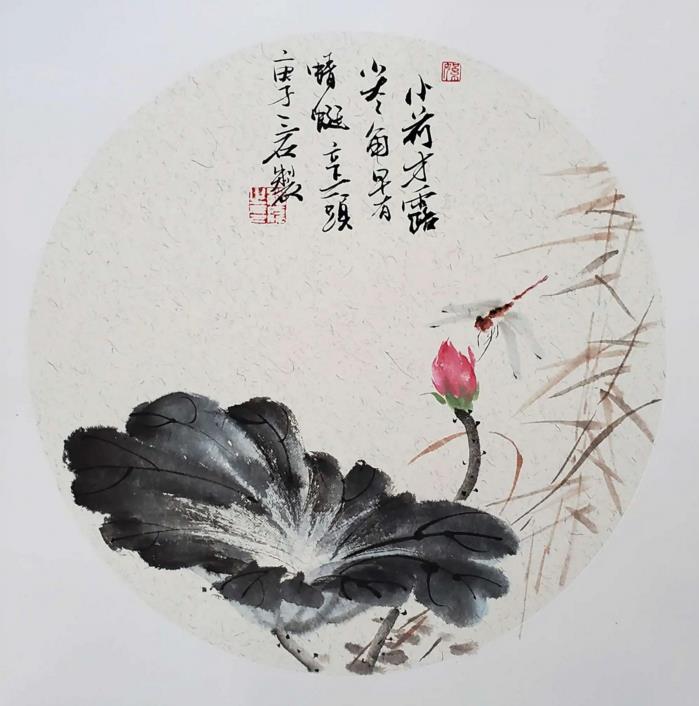 小荷才露
尖々角早有
蜻蜓立上頭
庚子三石製